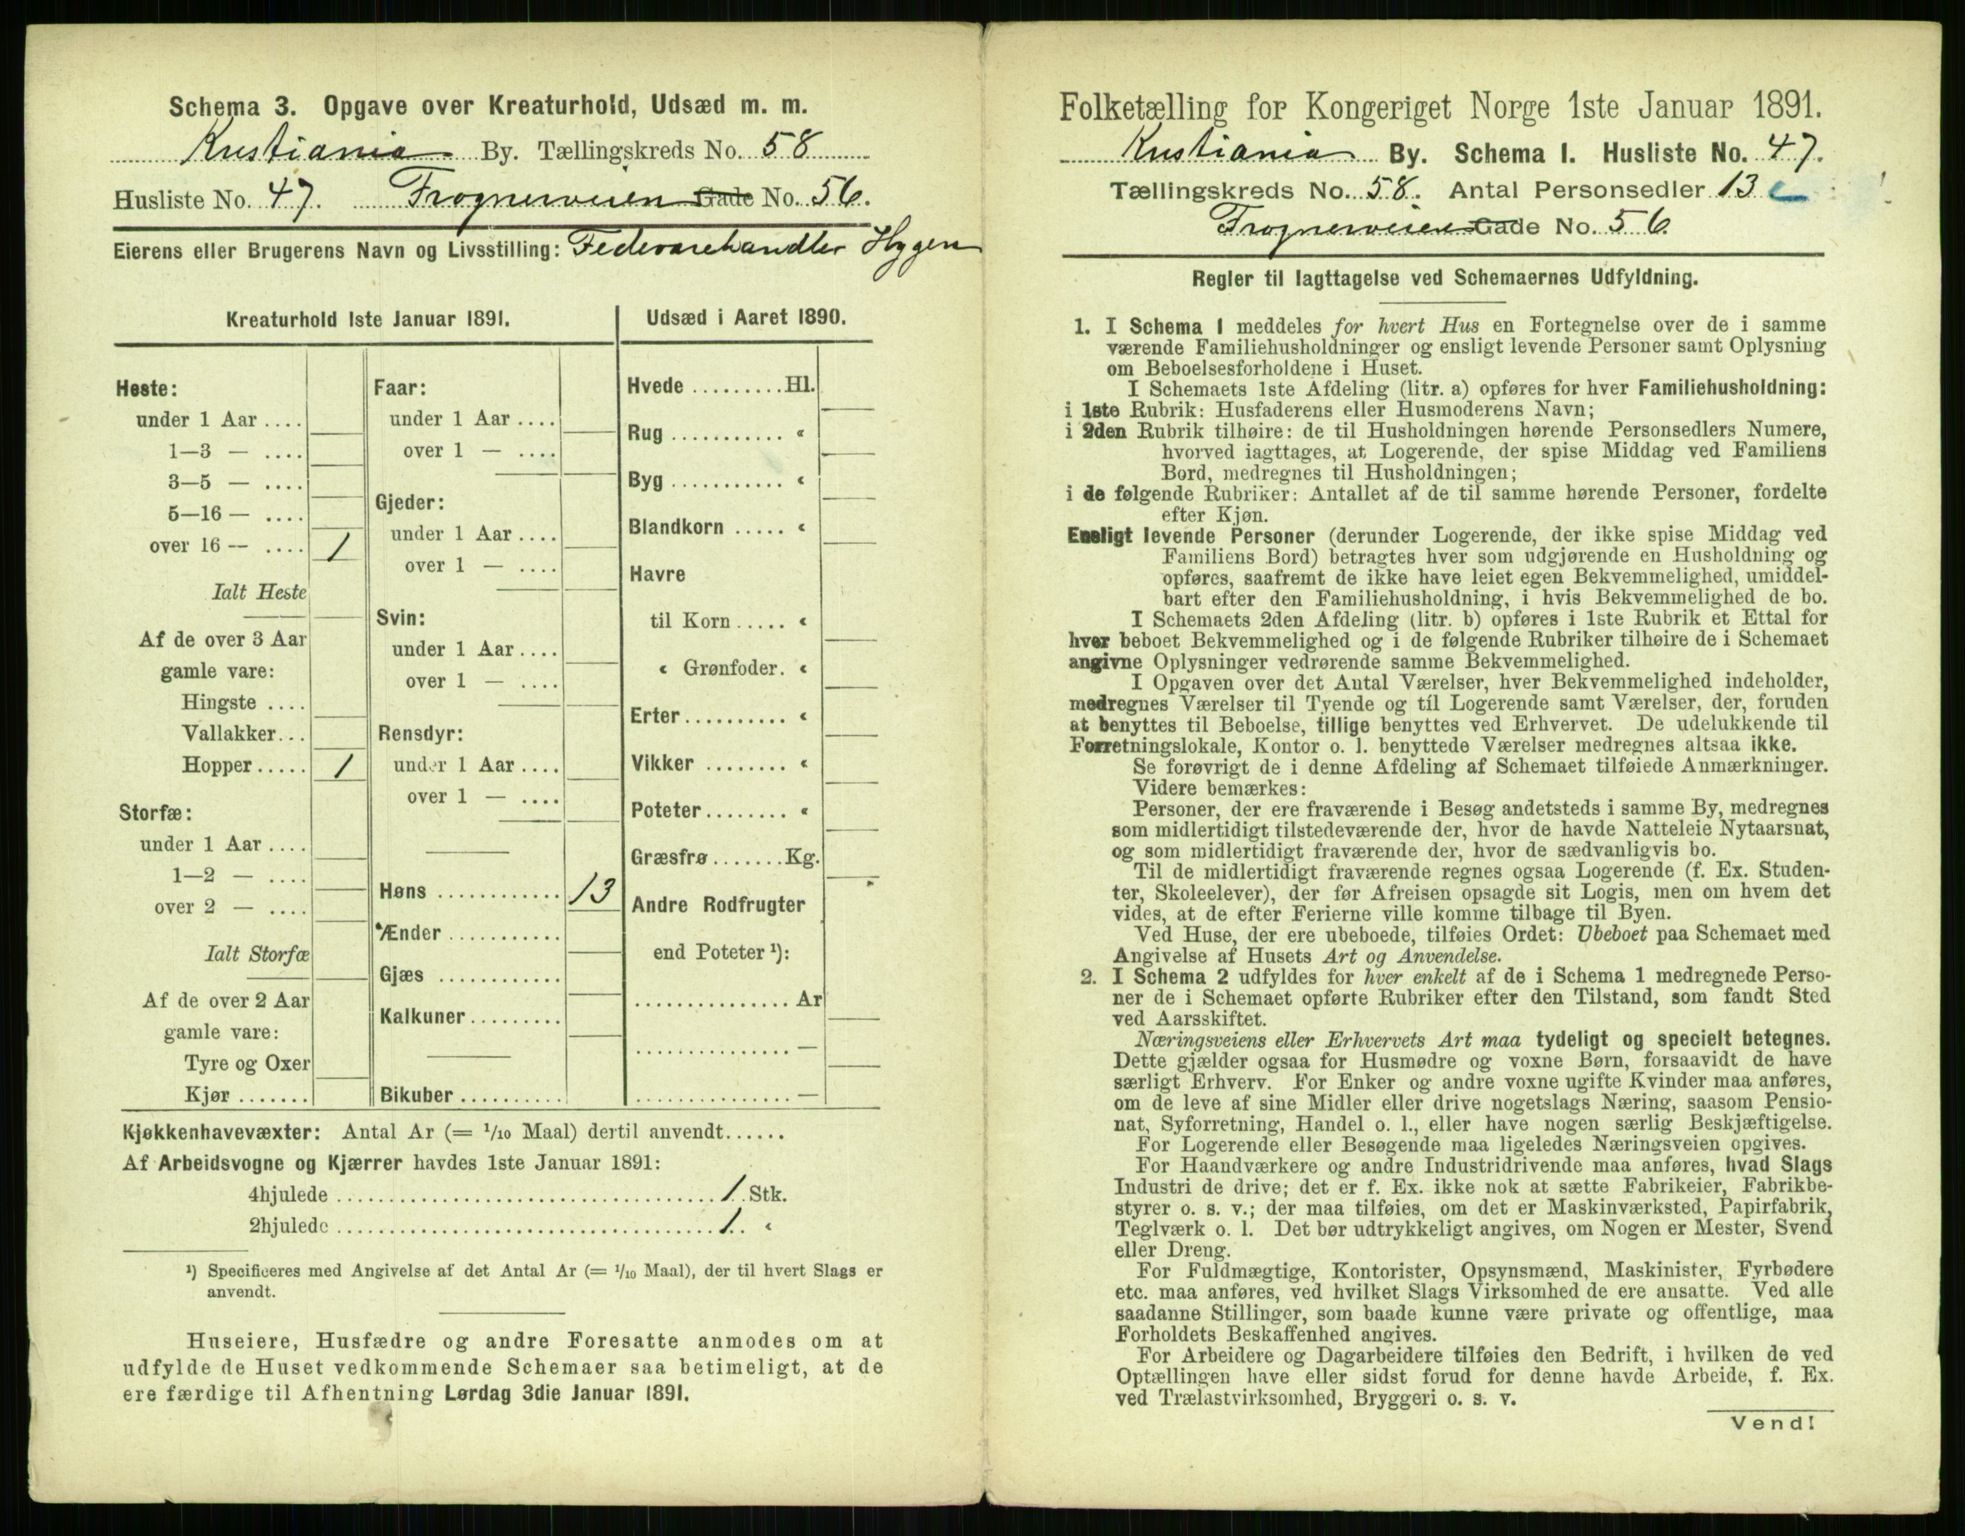 Schema 3. Opgave over Kreaturhold, Udsæd m. m.
Kristiania By. Tællingskreds No. 58
Husliste No. 47. Frognerveien Gade No. 56.
Eierens eller Brugerens Navn og Livsstilling: Fedevarehandler Hygen
Kreaturhold 1ste Januar 1891.
Heste:
under 1 Aar ....
1—3 — ....
3—5 — ....
5—16 — ....
over 16 — .... 1
Ialt Heste
Af de over 3 Aar
gamle vare:
Hingste ....
Vallakker...
Hopper..... 1
Storfæ:
under 1 Aar ....
1—2 — ....
over 2 — ....
Ialt Storfæ
Af de over 2 Aar
gamle vare:
Tyre og Oxer
Kjør .......
Faar:
under 1 Aar ....
over 1 — ....
Gjeder:
under 1 Aar ....
over 1 — ....
Svin:
under 1 Aar ....
over 1 — ....
Rensdyr:
under 1 Aar ....
over 1 — ....
Høns ............ 13
Ænder ...........
Gjæs ............
Kalkuner.........
Bikuber ..........
Udsæd i Aaret 1890.
Hvede .........Hl.
Rug ........... «
Byg ........... «
Blandkorn ..... «
Havre
til Korn ..... «
« Grønfoder. «
Erter.......... «
Vikker ........ «
Poteter........ «
Græsfrø.......Kg.
Andre Rodfrugter
end Poteter ¹):
............... Ar
............... —
............... —
Kjøkkenhavevæxter: Antal Ar (= 1/10 Maal) dertil anvendt......
Af Arbeidsvogne og Kjærrer havdes 1ste Januar 1891:
4hjulede .................................... 1 Stk.
2hjulede .................................... 1 «
¹) Specificeres med Angivelse af det Antal Ar (= 1/10 Maal), der til hvert Slags er
anvendt.
Huseiere, Husfædre og andre Foresatte anmodes om at
udfylde de Huset vedkommende Schemaer saa betimeligt, at de
ere færdige til Afhentning Lørdag 3die Januar 1891.
Folketælling for Kongeriget Norge 1ste Januar 1891.
Kristiania By. Schema I. Husliste No. 47.
Tællingskreds No. 58. Antal Personsedler 13
Frognerveien Gade No. 56
Regler til Iagttagelse ved Schemaernes Udfyldning.
1. I Schema 1 meddeles for hvert Hus en Fortegnelse over de i samme
værende Familiehusholdninger og ensligt levende Personer samt Oplysning
om Beboelsesforholdene i Huset.
I Schemaets 1ste Afdeling (litr. a) opføres for hver Familiehusholdning:
i 1ste Rubrik: Husfaderens eller Husmoderens Navn;
i 2den Rubrik tilhøire: de til Husholdningen hørende Personsedlers Numere,
hvorved iagttages, at Logerende, der spise Middag ved Familiens
Bord, medregnes til Husholdningen;
i de følgende Rubriker: Antallet af de til samme hørende Personer, fordelte
efter Kjøn.
Ensligt levende Personer (derunder Logerende, der ikke spise Middag ved
Familiens Bord) betragtes hver som udgjørende en Husholdning og
opføres, saafremt de ikke have leiet egen Bekvemmelighed, umiddel-
bart efter den Familiehusholdning, i hvis Bekvemmelighed de bo.
I Schemaets 2den Afdeling (litr. b) opføres i 1ste Rubrik et Ettal for
hver beboet Bekvemmelighed og i de følgende Rubriker tilhøire de i Schemaet
angivne Oplysninger vedrørende samme Bekvemmelighed.
I Opgaven over det Antal Værelser, hver Bekvemmelighed indeholder,
medregnes Værelser til Tyende og til Logerende samt Værelser, der, foruden
at benyttes til Beboelse, tillige benyttes ved Erhvervet. De udelukkende til
Forretningslokale, Kontor o. l. benyttede Værelser medregnes altsaa ikke.
Se forøvrigt de i denne Afdeling af Schemaet tilføiede Anmærkninger.
Videre bemærkes:
Personer, der ere fraværende i Besøg andetsteds i samme By, medregnes
som midlertidigt tilstedeværende der, hvor de havde Natteleie Nytaarsnat,
og som midlertidigt fraværende der, hvor de sædvanligvis bo.
Til de midlertidigt fraværende regnes ogsaa Logerende (f. Ex. Studen-
ter, Skoleelever), der før Afreisen opsagde sit Logis, men om hvem det
vides, at de efter Ferierne ville komme tilbage til Byen.
Ved Huse, der ere ubeboede, tilføies Ordet: Ubeboet paa Schemaet med
Angivelse af Husets Art og Anvendelse.
2. I Schema 2 udfyldes for hver enkelt af de i Schema 1 medregnede Perso-
ner de i Schemaet opførte Rubriker efter den Tilstand, som fandt Sted
ved Aarsskiftet.
Næringsveiens eller Erhvervets Art maa tydeligt og specielt betegnes.
Dette gjælder ogsaa for Husmødre og voxne Børn, forsaavidt de have
særligt Erhverv. For Enker og andre voxne ugifte Kvinder maa anføres,
om de leve af sine Midler eller drive nogetslags Næring, saasom Pensio-
nat, Syforretning, Handel o. l., eller have nogen særlig Beskjæftigelse.
For Logerende eller Besøgende maa ligeledes Næringsveien opgives.
For Haandværkere og andre Industridrivende maa anføres, hvad Slags
Industri de drive; det er f. Ex. ikke nok at sætte Fabrikeier, Fabrikbe-
styrer o. s. v.; der maa tilføies, om det er Maskinværksted, Papirfabrik,
Teglværk o. l. Det bør udtrykkeligt angives, om Nogen er Mester, Svend
eller Dreng.
For Fuldmægtige, Kontorister, Opsynsmænd, Maskinister, Fyrbødere
etc. maa anføres, ved hvilket Slags Virksomhed de ere ansatte. Ved alle
saadanne Stillinger, som baade kunne være private og offentlige, maa
Forholdets Beskaffenhed angives.
For Arbeidere og Dagarbeidere tilføies den Bedrift, i hvilken de ved
Optællingen have eller sidst forud for denne havde Arbeide, f. Ex.
ved Trælastvirksomhed, Bryggeri o. s. v.
Vend!